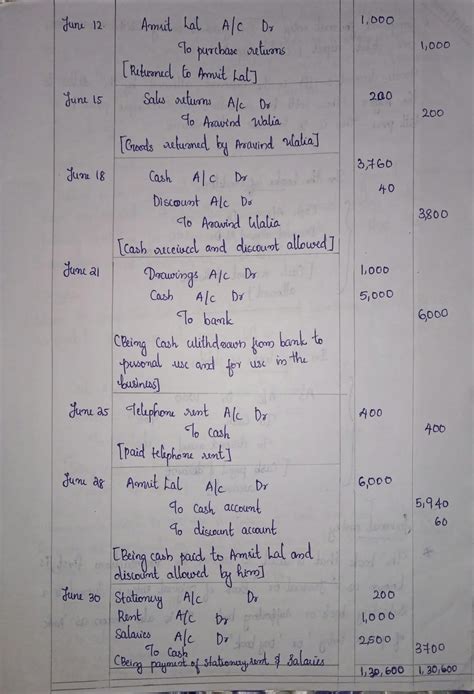 June 12 Amrit Lal A/C Dr 1,000
To purchase returns 1,000
[Returned to Amrit Lal]
June 15 Sales returns A/c Dr 200
To Aravind Walia 200
[Goods returned by Aravind Walia]
June 18 Cash A/C Dr 3,760
Discount A/c Dr 40
To Aravind Walia 3,800
[Cash received and discount allowed]
June 21 Drawings A/c Dr 1,000
Cash A/c Dr 5,000
To bank 6,000
(Being Cash Withdrawn from bank to
personal use and for use in the
business]
June 25 Telephone rent A/c Dr 400
To cash 400
[paid telephone rent]
June 28 Amrit Lal A/c Dr 6,000
To cash account 5,940
To discount account 60
[Being cash paid to Amrit Lal and
discount allowed by him]
June 30 Stationery A/c Dr 200
Rent A/c Dr 1,000
Salaries A/c Dr 2,500
To Cash 3700
(Being payment of stationery, rent & Salaries
1,30,600 1,30,600